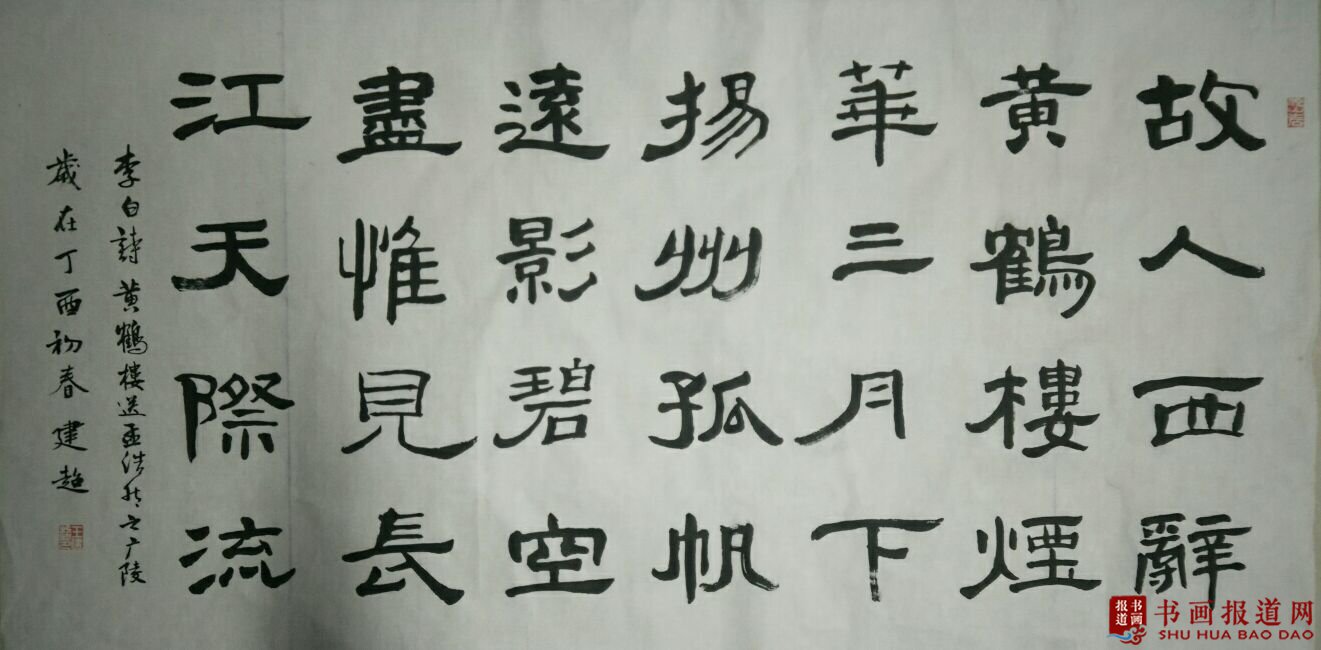 故人西辭
黃鶴樓煙
華三月下
揚州孤帆
遠影碧空
盡惟見長
江天際流
李白詩黃鶴樓送孟浩然之廣陵
歲在丁酉初春建超
书画报道
书画报道网
SHU HUA BAO DAO